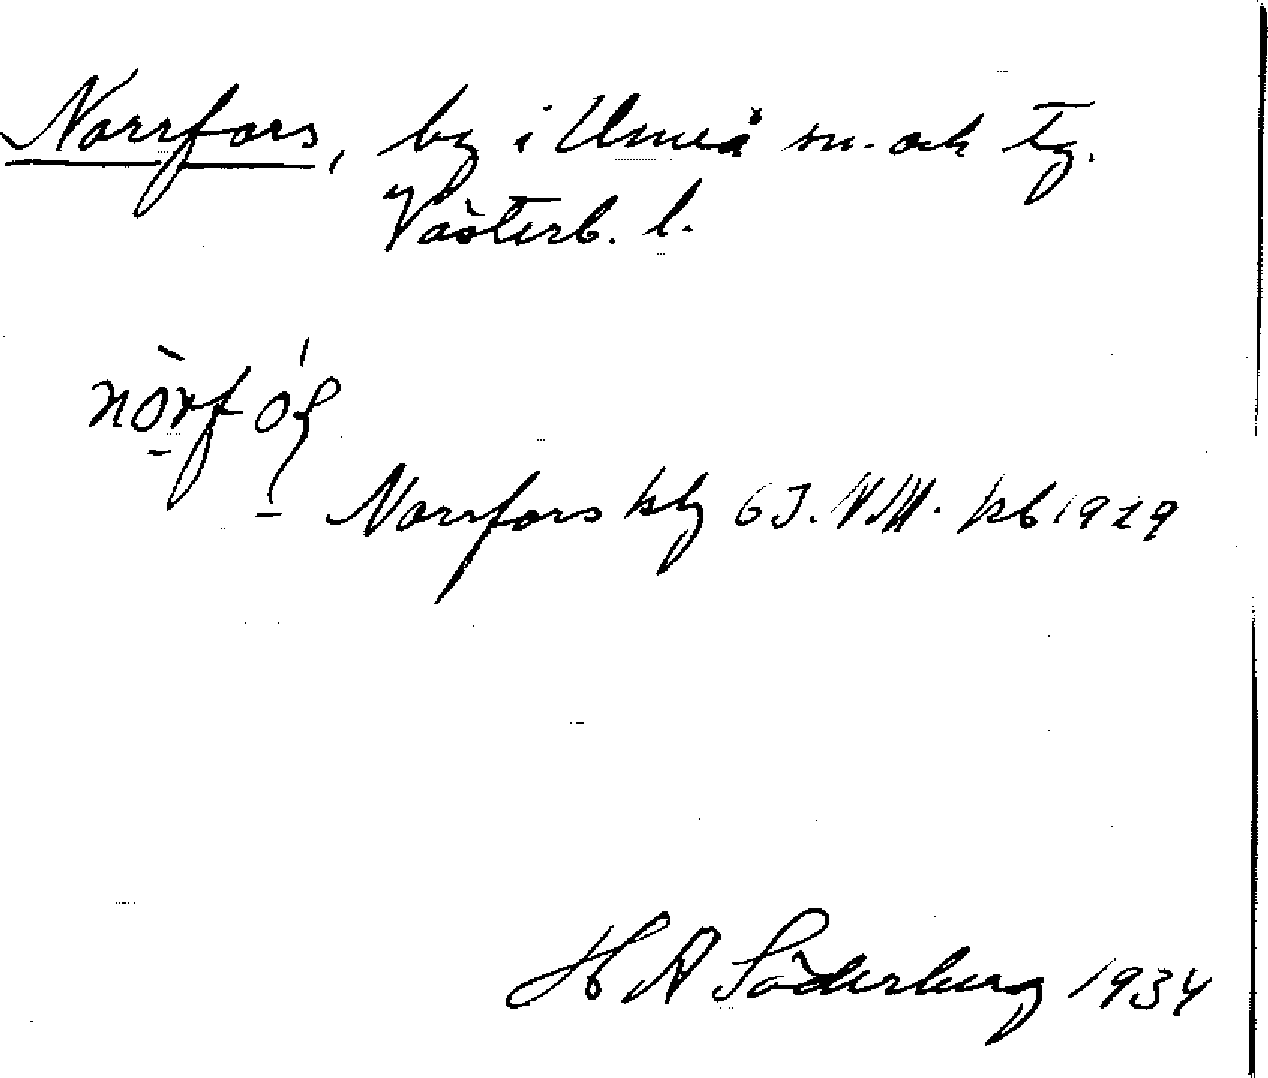 Norrfors, by i Umeå sn. och tg.
Västerb. l.
Norrfors kby 6 J. VIII. kb 1929
H A Söderberg 1934